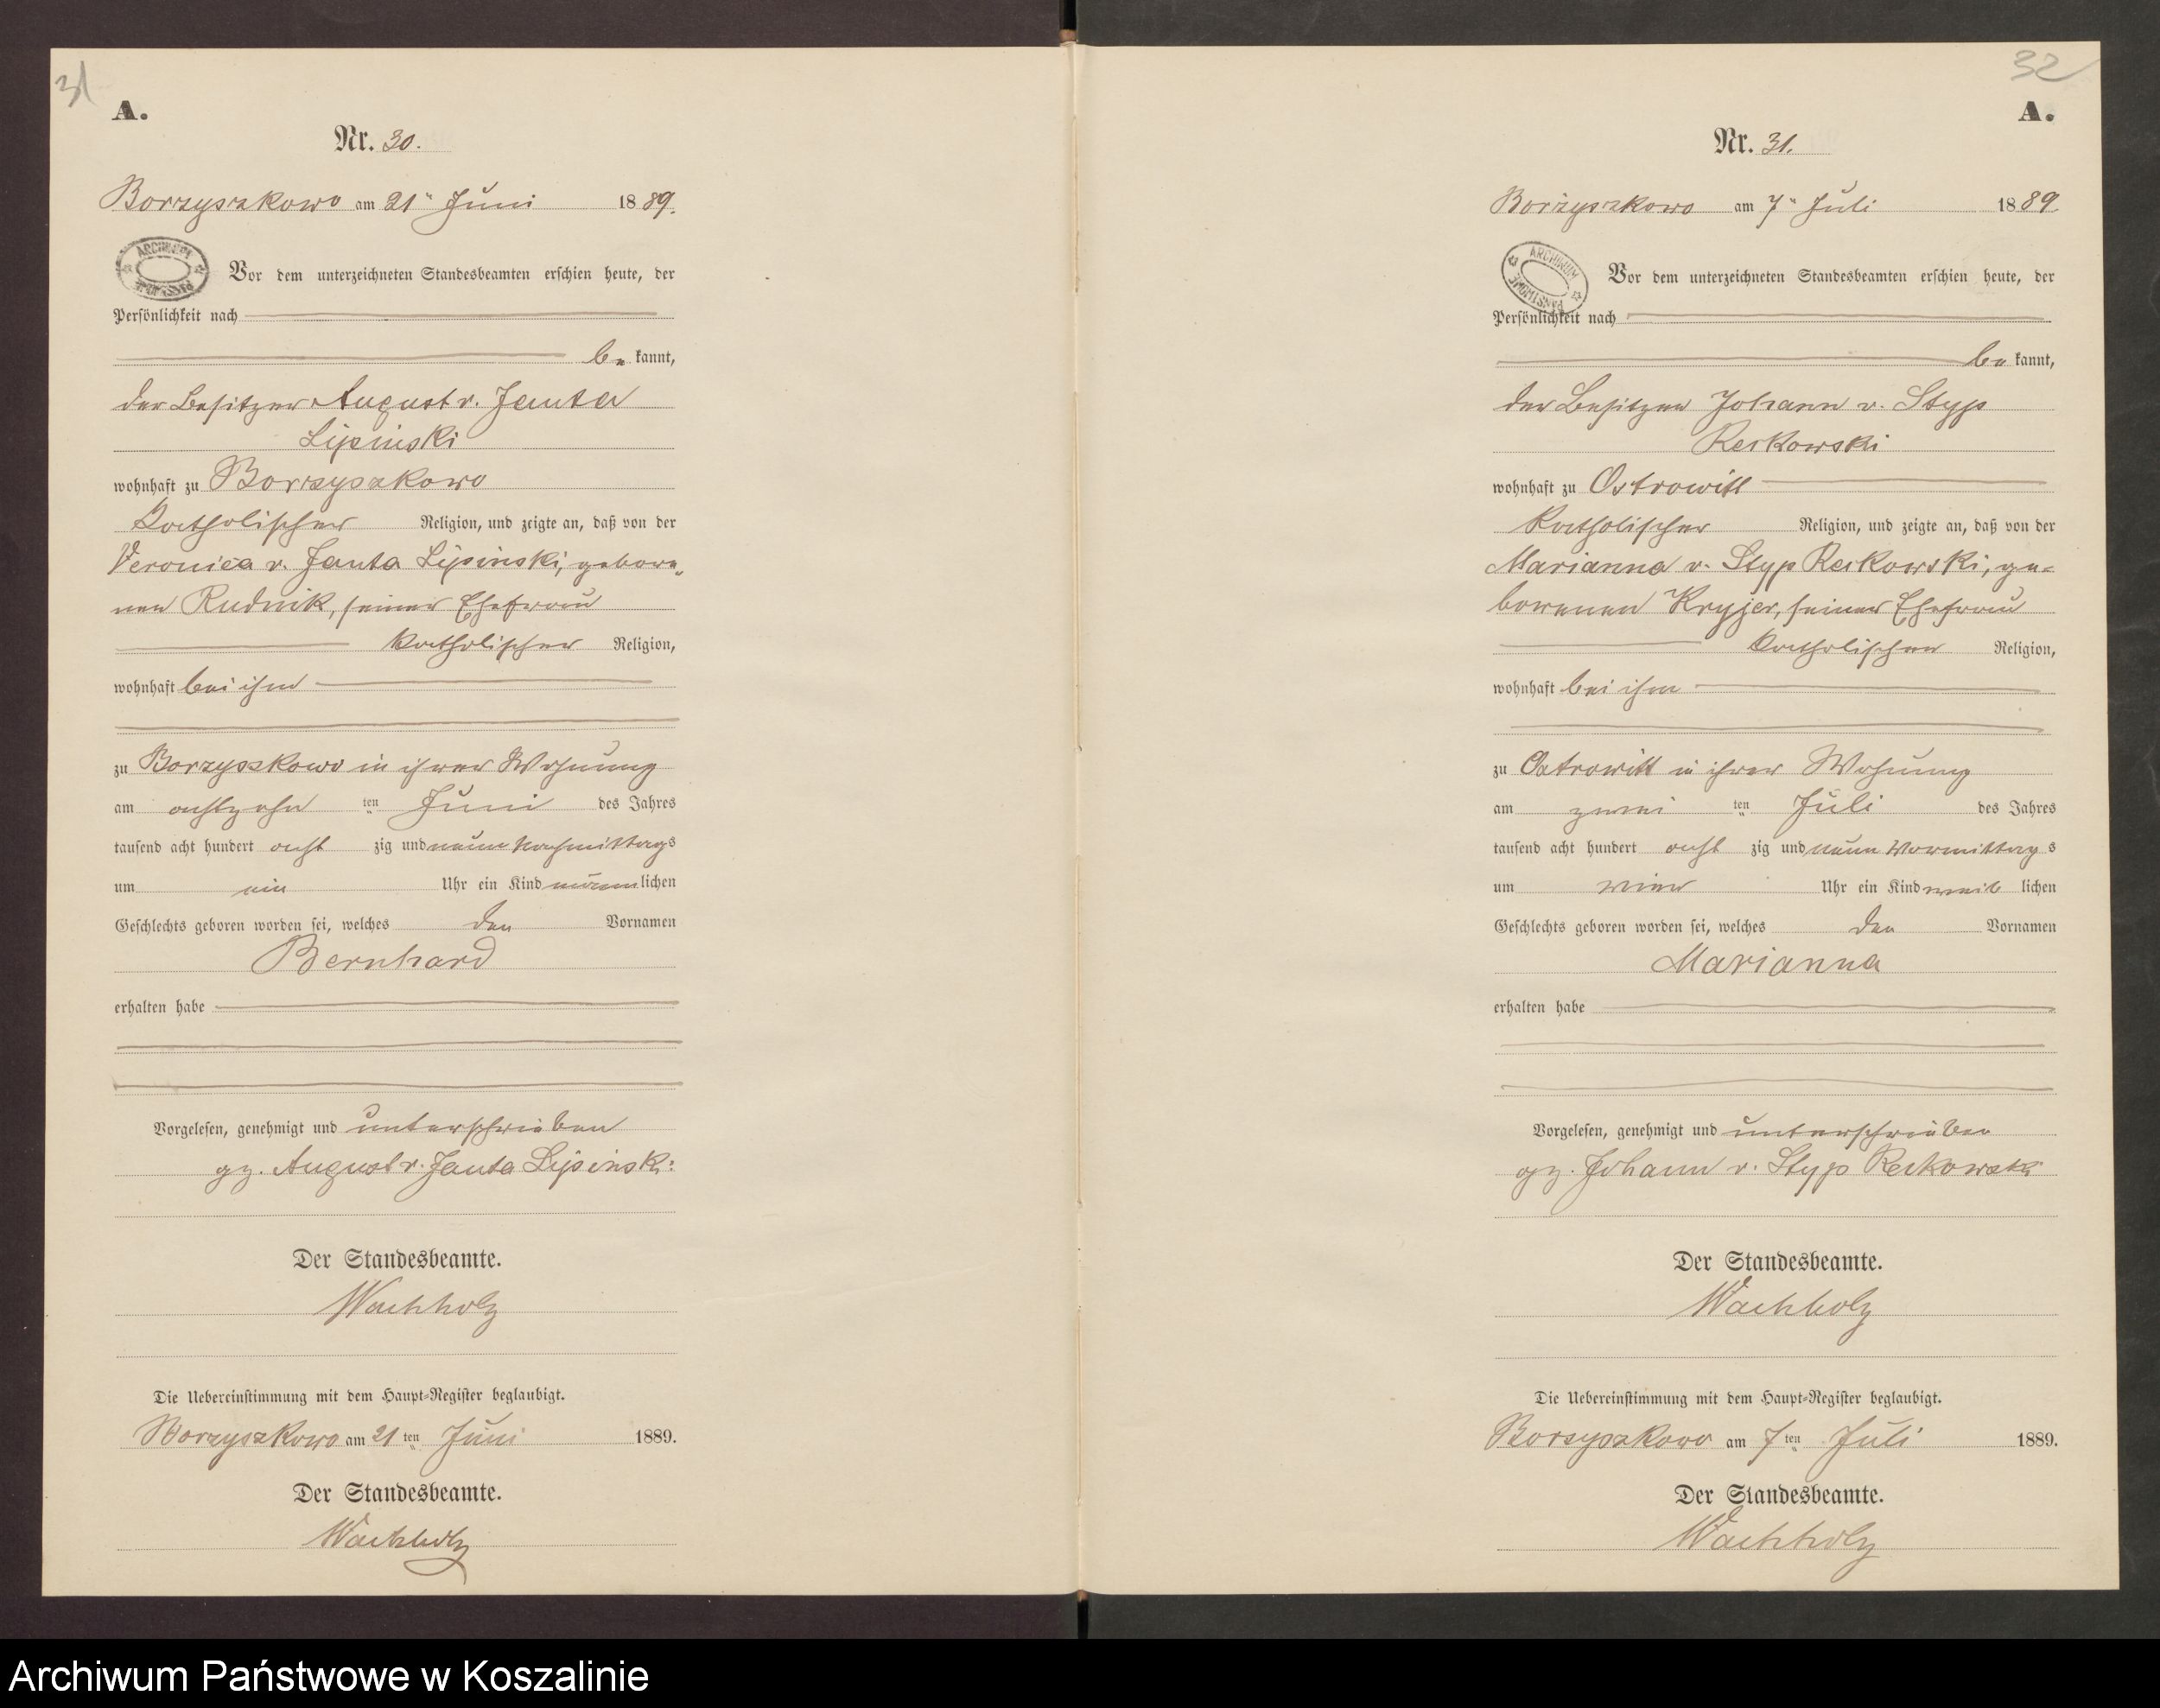 31
A.
Nr. 30.
Borzyszkowo am 21ⁿ Juni 1889.
ARCHIWUM PAŃSTWOWE
Vor dem unterzeichneten Standesbeamten erschien heute, der
Persönlichkeit nach
be kannt,
der Besitzer August v. Janta
Lipinski
wohnhaft zu Borzyszkowo
katholischer Religion, und zeigte an, daß von der
Veronica v. Janta Lipinski, gebore-
nen Rudnik, seiner Ehefrau
katholischer Religion,
wohnhaft bei ihm
zu Borzyszkowo in ihrer Wohnung
am achtzehn ten Juni des Jahres
tausend acht hundert acht zig und neun Nachmittags
um ein Uhr ein Kind männlichen
Geschlechts geboren worden sei, welches den Vornamen
Bernhard
erhalten habe
Vorgelesen, genehmigt und unterschrieben
gz. August v. Janta Lipinski
Der Standesbeamte.
Wachholz
Die Uebereinstimmung mit dem Haupt-Register beglaubigt.
Borzyszkowo am 21 ten Juni 1889.
Der Standesbeamte.
Wachholz
32
A.
Nr. 31.
Borzyszkowo am 7ⁿ Juli 1889
ARCHIWUM PAŃSTWOWE
Vor dem unterzeichneten Standesbeamten erschien heute, der
Persönlichkeit nach
be kannt,
der Besitzer Johann v. Styp
Rekowski
wohnhaft zu Ostrowitt
katholischer Religion, und zeigte an, daß von der
Marianna v. Styp Rekowski, ge-
borenen Kryjer, seiner Ehefrau
katholischer Religion,
wohnhaft bei ihm
zu Ostrowitt in ihrer Wohnung
am zwei ten Juli des Jahres
tausend acht hundert acht zig und neun Vormittags
um vier Uhr ein Kind weib lichen
Geschlechts geboren worden sei, welches den Vornamen
Marianna
erhalten habe
Vorgelesen, genehmigt und unterschrieben
gz. Johann v. Styp Rekowski
Der Standesbeamte.
Wachholz
Die Uebereinstimmung mit dem Haupt-Register beglaubigt.
Borzyszkowo am 7 ten Juli 1889.
Der Standesbeamte.
Wachholz
Archiwum Państwowe w Koszalinie